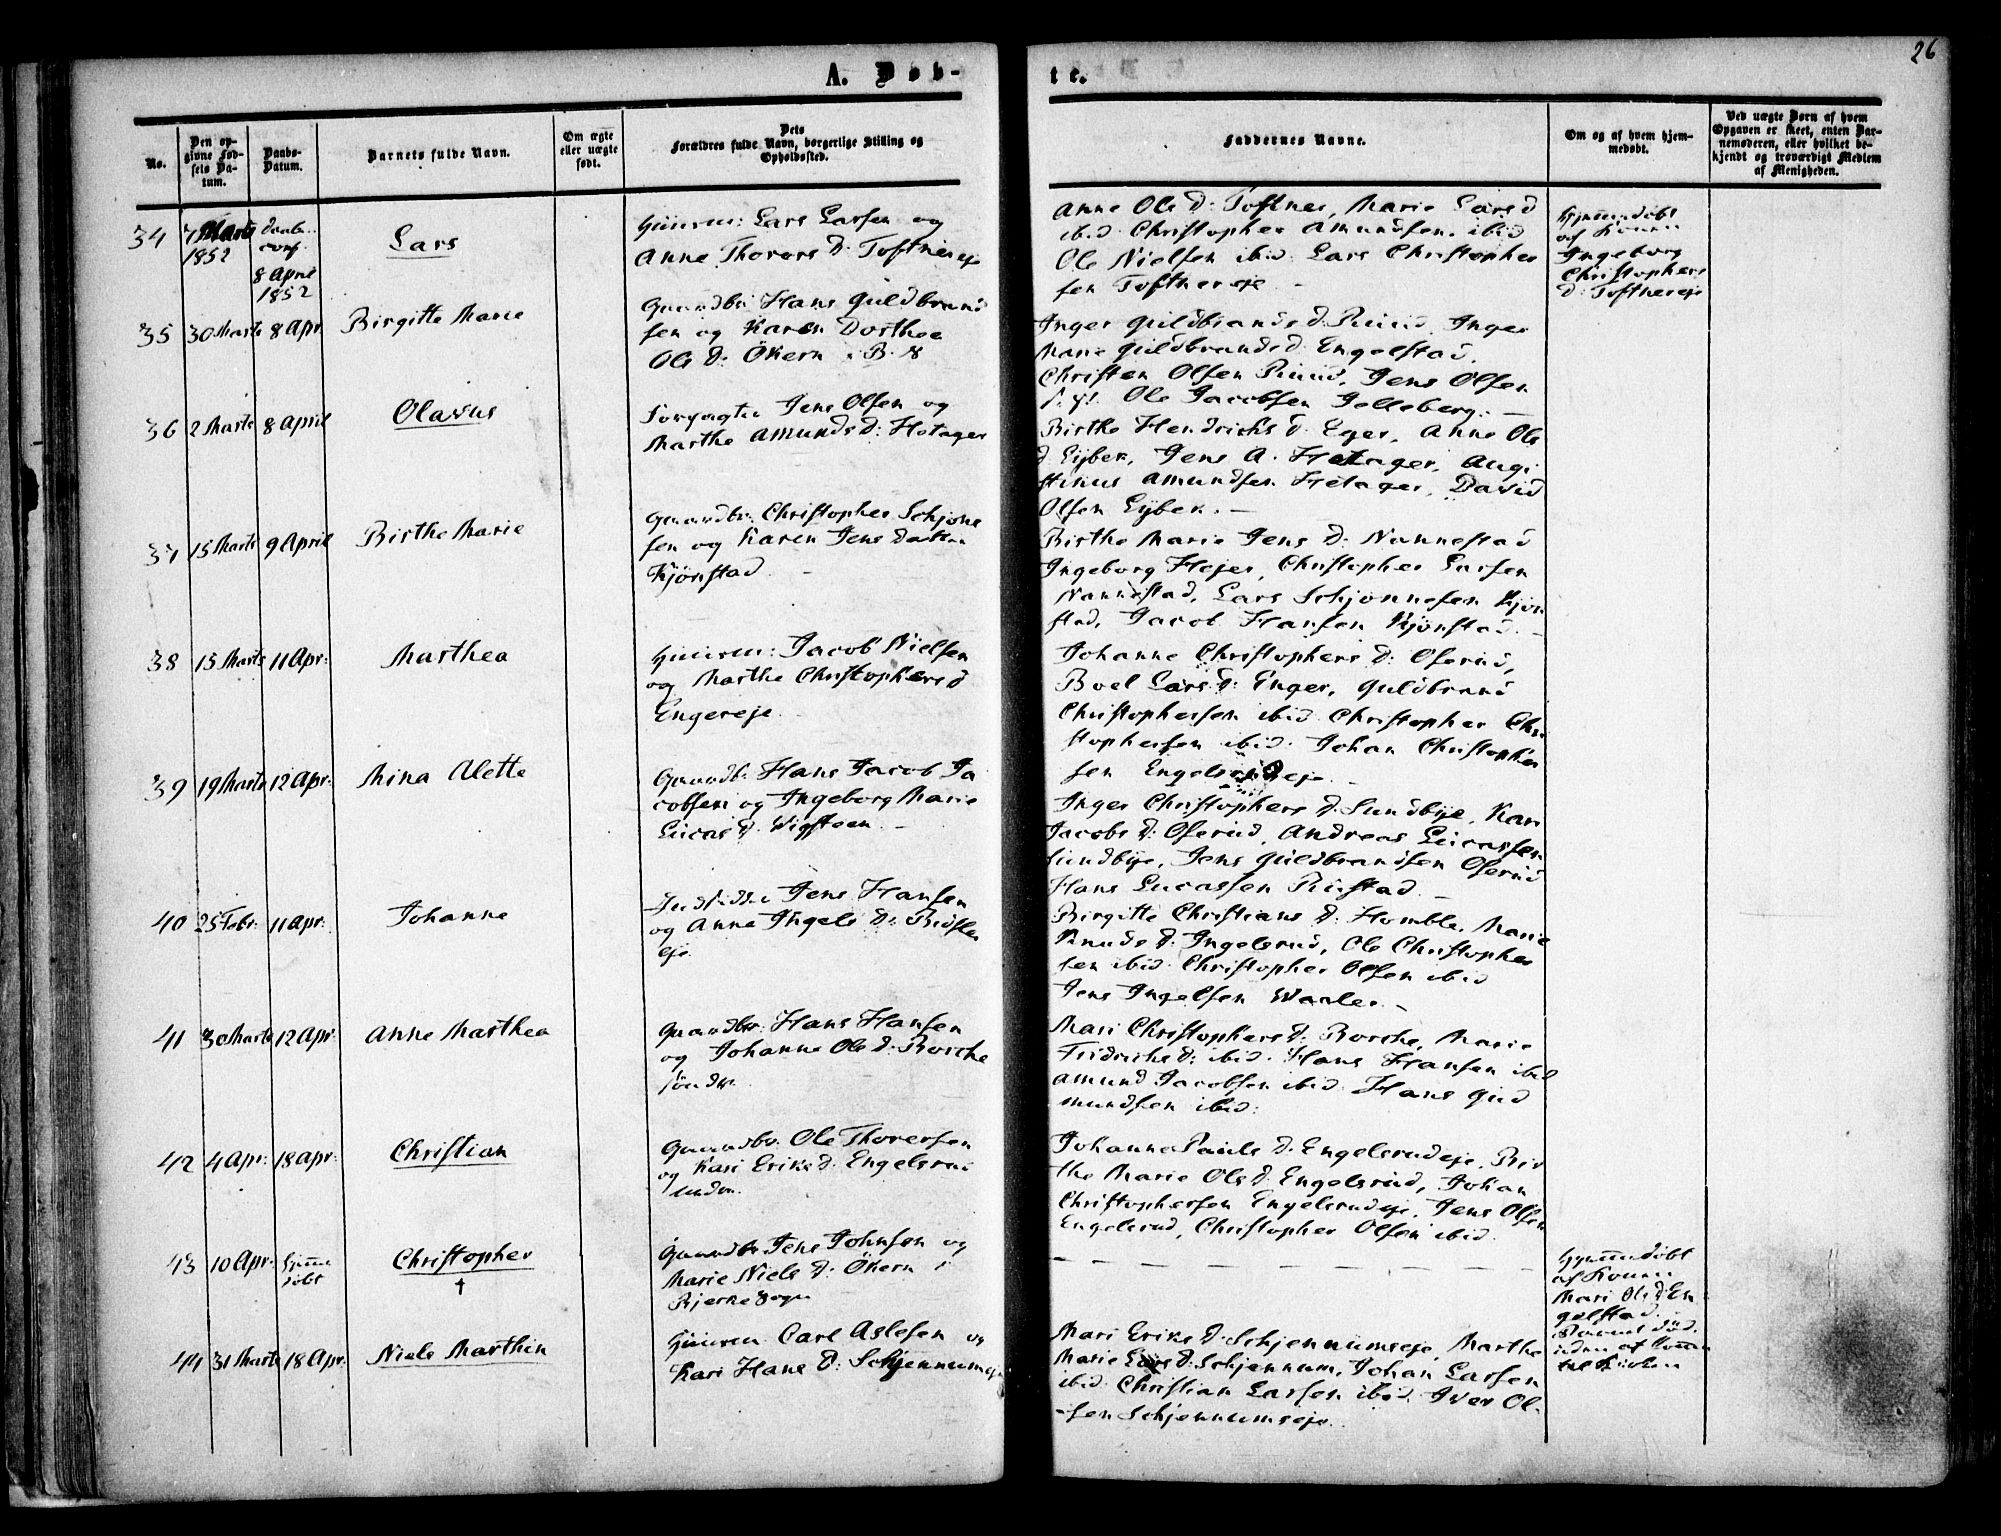 26
A. Døb-
te.
No.
Den op-
givne Fød-
sels Da-
tum.
Daabs-
Datum.
Barnets fulde Navn.
Om ægte
eller uægte
født.
Dets
Forældres fulde Navn, borgerlige Stilling og
Opholdssted.
Faddernes Navne.
Om og af hvem hjem-
medøbt.
Ved uægte Børn af hvem
Opgaven er skeet, enten Bar-
nemoderen, eller hvilket be-
kjendt og troværdigt Medlem
af Menigheden.
34
7 Marts
1852
daabs
conf
8 April
1852
Lars
Huusm: Lars Larsen og
Anne Thorers D: Toftnereje
Anne Ols D: Toftner, Marie Lars d
ibid Christopher Amundsen ibid
Ole Nielsen ibid Lars Christopher
sen Toftnereje
Hjemmedøbt
af Konen
Ingeborg
Christophers
D: Toftnereje
35 30 Marts 8 Apr Birgitte Marie
Gaardbr: Hans Guldbrand
sen og Karen Dorthea
Ols D: Økern
Inger Guldbrands d: Ruud, Inger
Marie Guldbrandsd: Engelstad,
Christen Olsen Ruud, Jens Olsen
Ole Jacobsen Jelleberg. —
36 2 Marts 8 April Olavus
Jens Olsen og
Marthe Amunds D: Hotager
Birthe Hendrichs d: Eger, Anne Ols
d Eyber, Jens A. Hetager, Augu
stinus Amundsen Hetager, David
Olsen Eyber. —
37 15 Marts 9 April Birthe Marie
Gaardbr: Christopher Schjøne
sen og Karen Jens datter
Kjønstad
Birthe Marie Jens D: Nannestad
Ingeborg Hejer, Christopher Larsen
Nannestad, Lars Schjønnesen Kjøn
stad, Jacob Hansen Kjønstad. —
38 15 Marts 11 Apr: Marthea
Huusm: Jacob Nielsen
og Marthe Christophersd
Engereje
Johanne Christophers D: Oserud,
Boel Lars D: Enger, Guldbrand
Christophersen ibid Christopher Chri
stophersen ibid. Johan Christopher
sen Engelsrudeje —
39 19 Marts 12 Apr: Mina Alette
Gaardb: Hans Jacob Ja
cobsen og Ingeborg Marie
Lucas D: Wigsteen —
Inger Christophers D: Sundbye, Kari
Jacobs D: Oserud, Andreas Lucassen
Sundbye, Jens Guldbrandsen Oserud
Hans Lucassen Rustad —
40 25 Febr: 11 Apr: Johanne
Inderster Jens Hansen
og Anne Ingels D:
eje
Birgitte Christians D: Homble, Marie
Knuds D: Ingelsrud, Ole Christopher
sen ibid Christopher Olsen ibid
Jens Ingelsen Waaler. —
41 30 Marts 12 Apr: Anne Marthea
Gaardbr: Hans Hansen
og Johanne Ols D: Borche
søndre
Mari Christophers D: Borche, Marie
Fridrichs D: ibid Hans Hansen ibid
Amund Jacobsen ibid Hans Gud
mundsen ibid:
42 4 Apr: 18 Apr: Christian
Gaardbr. Ole Thoresen
og Kari Eriks D: Engelsrud
Johanne Pauls D: Engelsrudeje, Bir
the Marie Ols D: Engelsrud, Johan
Christophersen Engelsrudeje, Jens Olsen
Engelsrud, Christopher Olsen ibid.
43 10 Apr: Hjemme
døbt
Christopher
†
Gaardbr Jens Johnsen og
Marie Niels D: Økern i
Bjerke Sogn
— — — — — — — —
Hjemmedøbt
af Konen
Mari Ols D: En
gelstad
Barnet død
inden
til Kirken
44 31 Marts 18 Apr: Niels Marthin
Huusm Carl Aslesen og
Kari Hans D: Schjennumeje
Mari Eriks D: Schjennumseje, Marthe
Marie Lars D: Schjennum, Johan Larsen
ibid Christian Larsen ibid Iver Ol-
sen Schjennumseje.